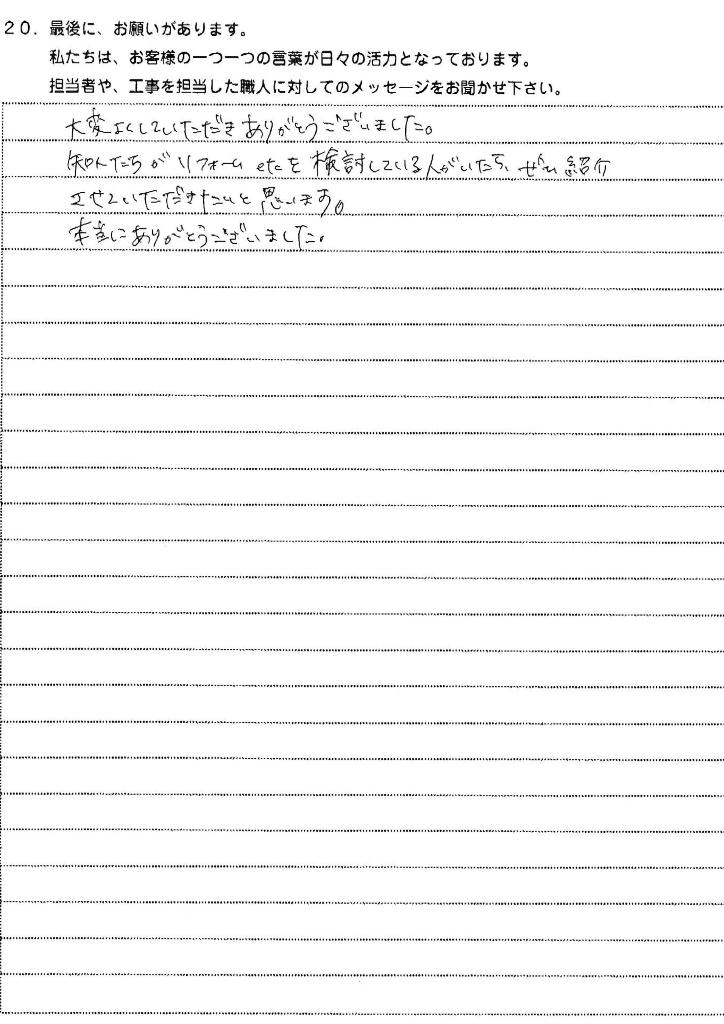 20. 最後に、お願いがあります。
私たちは、お客様の一つ一つの言葉が日々の活力となっております。
担当者や、工事を担当した職人に対してのメッセージをお聞かせ下さい。
大変よくしていただきありがとうございました。
知人たちがリフォームetcを検討している人がいたら、ぜひ紹介
させていただきたいと思います。
本当にありがとうございました。